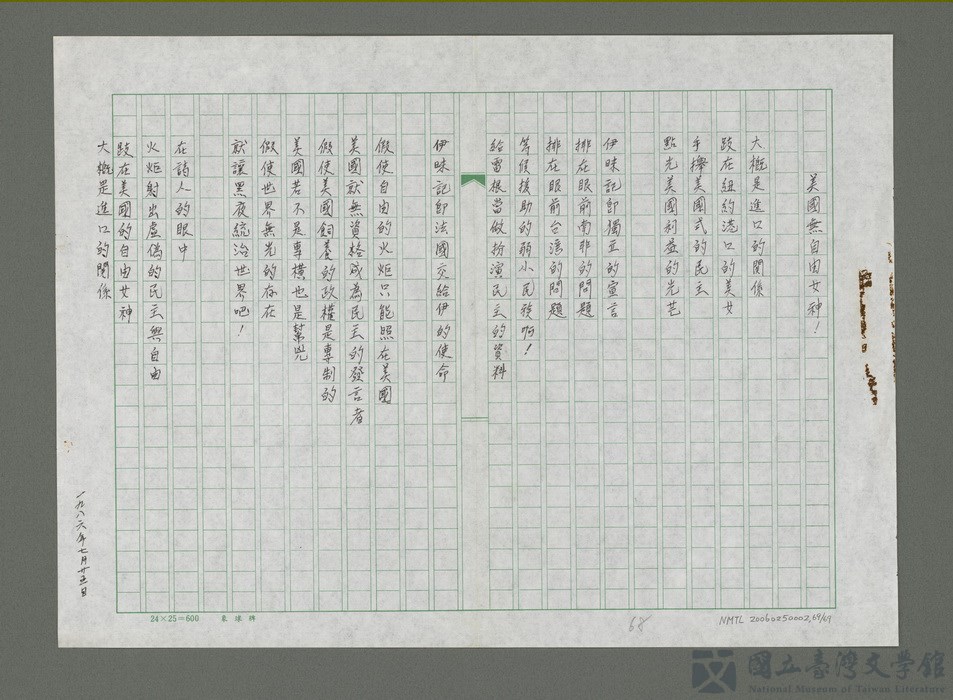 美國無自由女神！
大概是進口的關係
跂在紐約港口的美女
手擧美國式的民主
點光美國利益的光芒
伊昧記卽獨立的宣言
排在眼前南非的問題
排在眼前台湾的問題
等候援助的弱小民族啊！
給雷根當做扮演民主的資料
伊昧記卽法國交給伊的使命
假使自由的火炬只能照在美國
美國就無資格成為民主的發言者
假使美國飼養的政權是專制的
美國若不是專横也是幫兇
假使世界無光的存在
就讓黑夜統治世界吧！
在詩人的眼中
火炬射出虛偽的民主與自由
跂在美國的自由女神
大概是進口的關係
一九八六年七月廿五日
24×25=600
68
NMTL 20060250002,69/
國立臺灣文學館
National Museum of Taiwan Literature